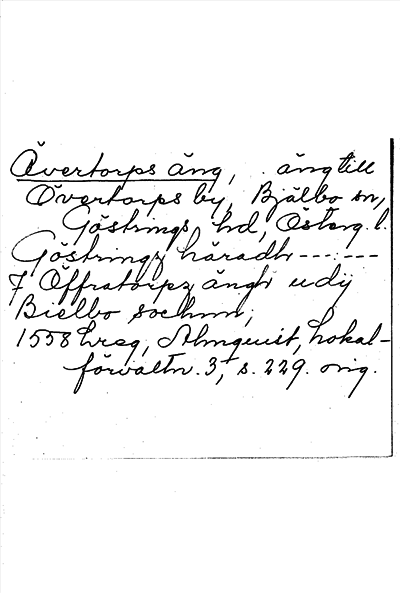 Övertorps äng, äng till
Övertorps by, Bjälbo sn,
Göstrings hd, Österg. l.
Göstringz häradh ------
7 Öffratorpz ängh udij
Bielbo sochnn,
1558 hreg, Almquist, Lokal-
förvaltn. 3, s. 229. orig.